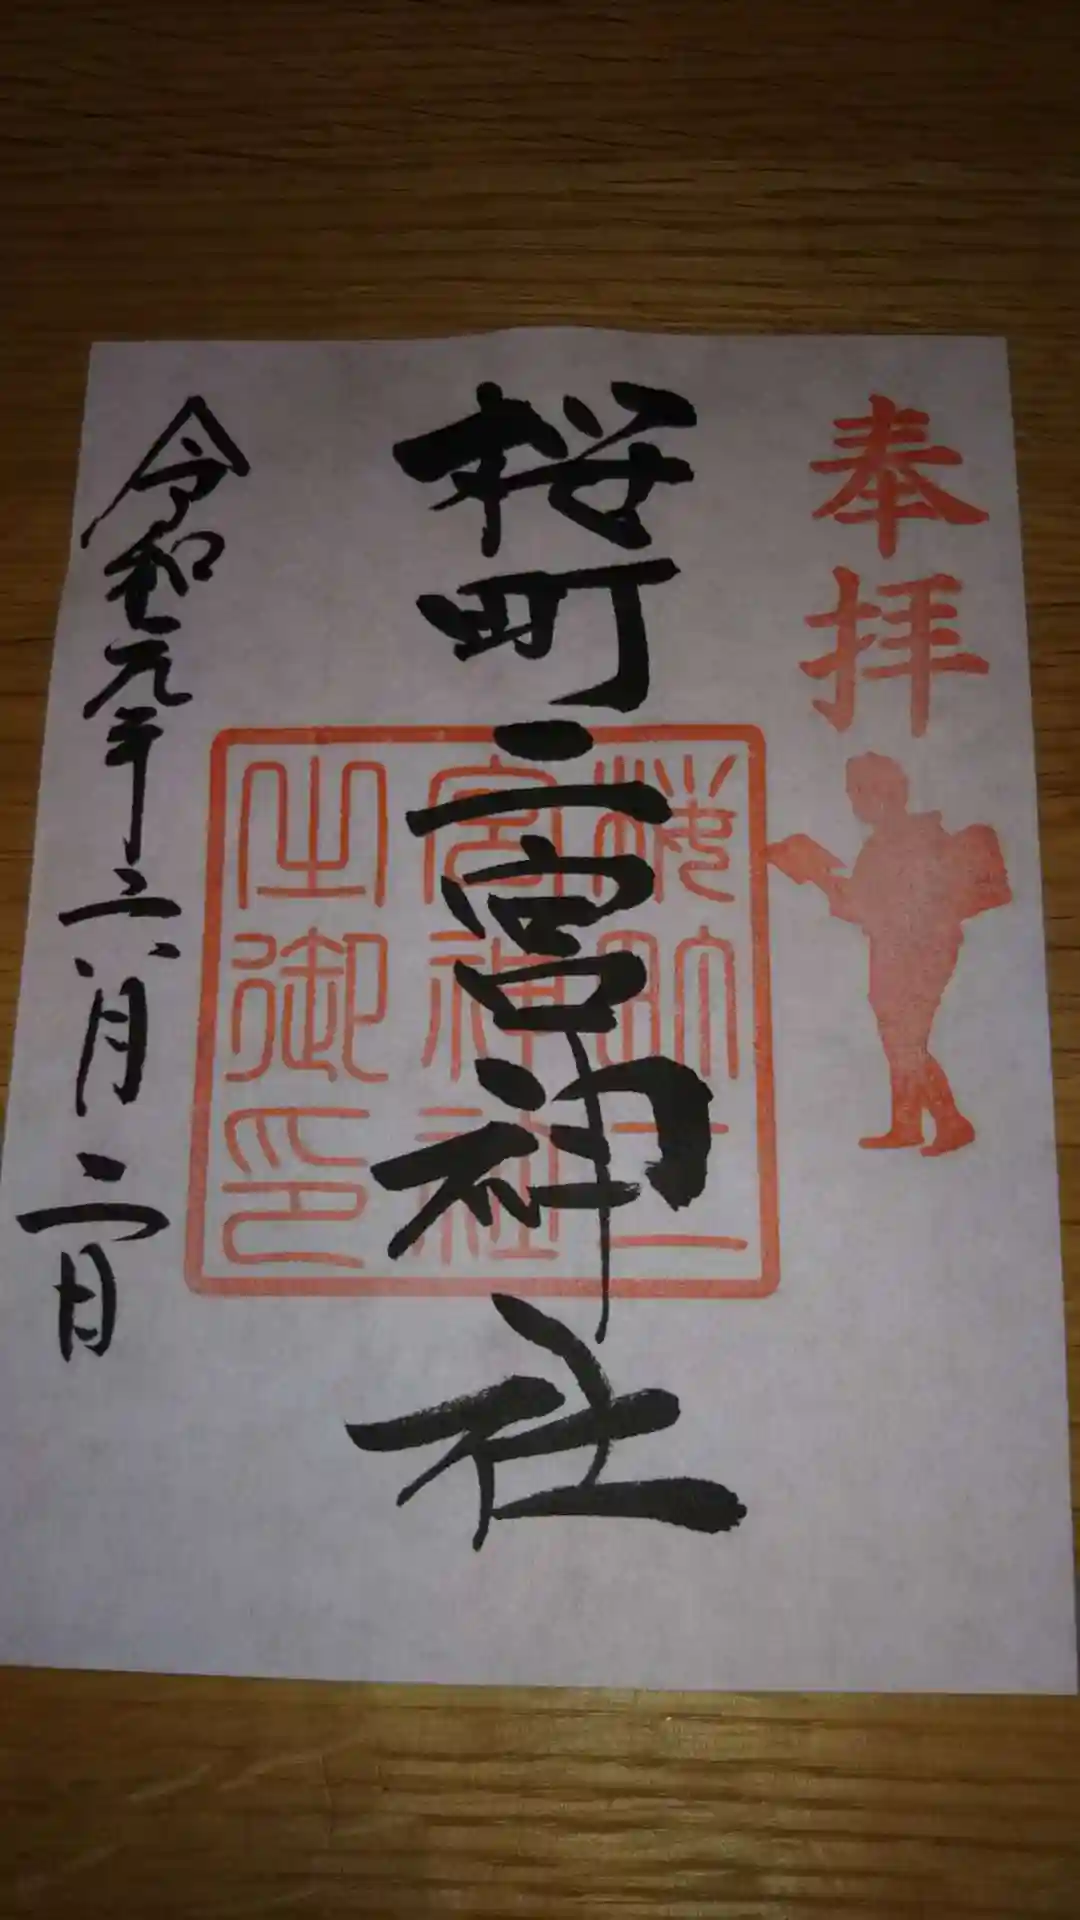 奉拝
桜町二宮神社
櫻町二
宮神社
之御印
令和元年六月二日